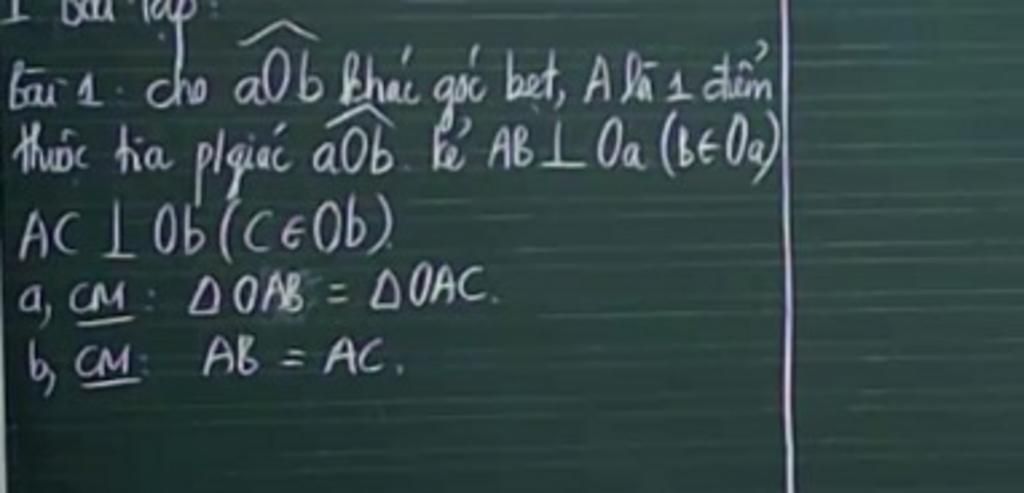 I Bài tập:
Bài 1. cho aOb khác góc bẹt, A là 1 điểm
thuộc tia p/giác aOb. kẻ AB ⊥ Oa (B∈Oa)
AC ⊥ Ob (C∈Ob)
a, CM: ΔOAB = ΔOAC.
b, CM: AB = AC.